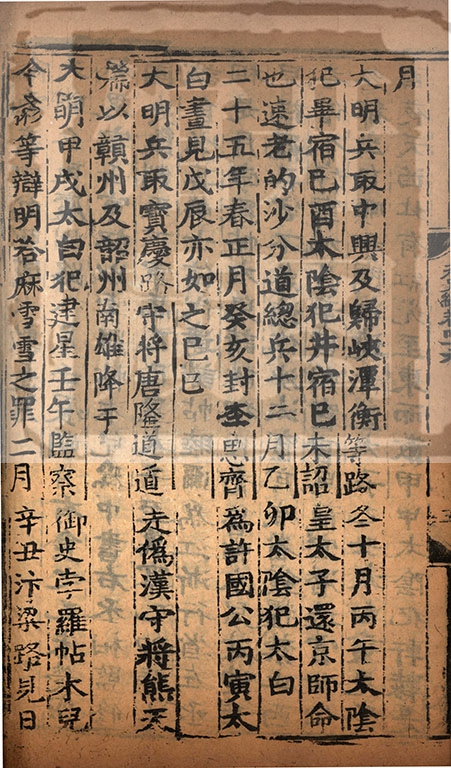 月
大明兵取中興及歸峽潭衡等路冬十月丙午太陰
犯畢宿己酉太陰犯井宿己未詔皇太子還京師命
也速老的沙分道總兵十二月乙卯太陰犯太白
二十五年春正月癸亥封李思齊爲許國公丙寅太
白晝見戊辰亦如之己巳
大明兵取寶慶路守將唐隆道遁走僞漢守將熊天
瑞以贛州及韶州南雄降于
大明甲戌太白犯建星壬午監察御史孛羅帖木兒
今彥等辯明若麻雪雪之罪二月辛丑汴梁路見日